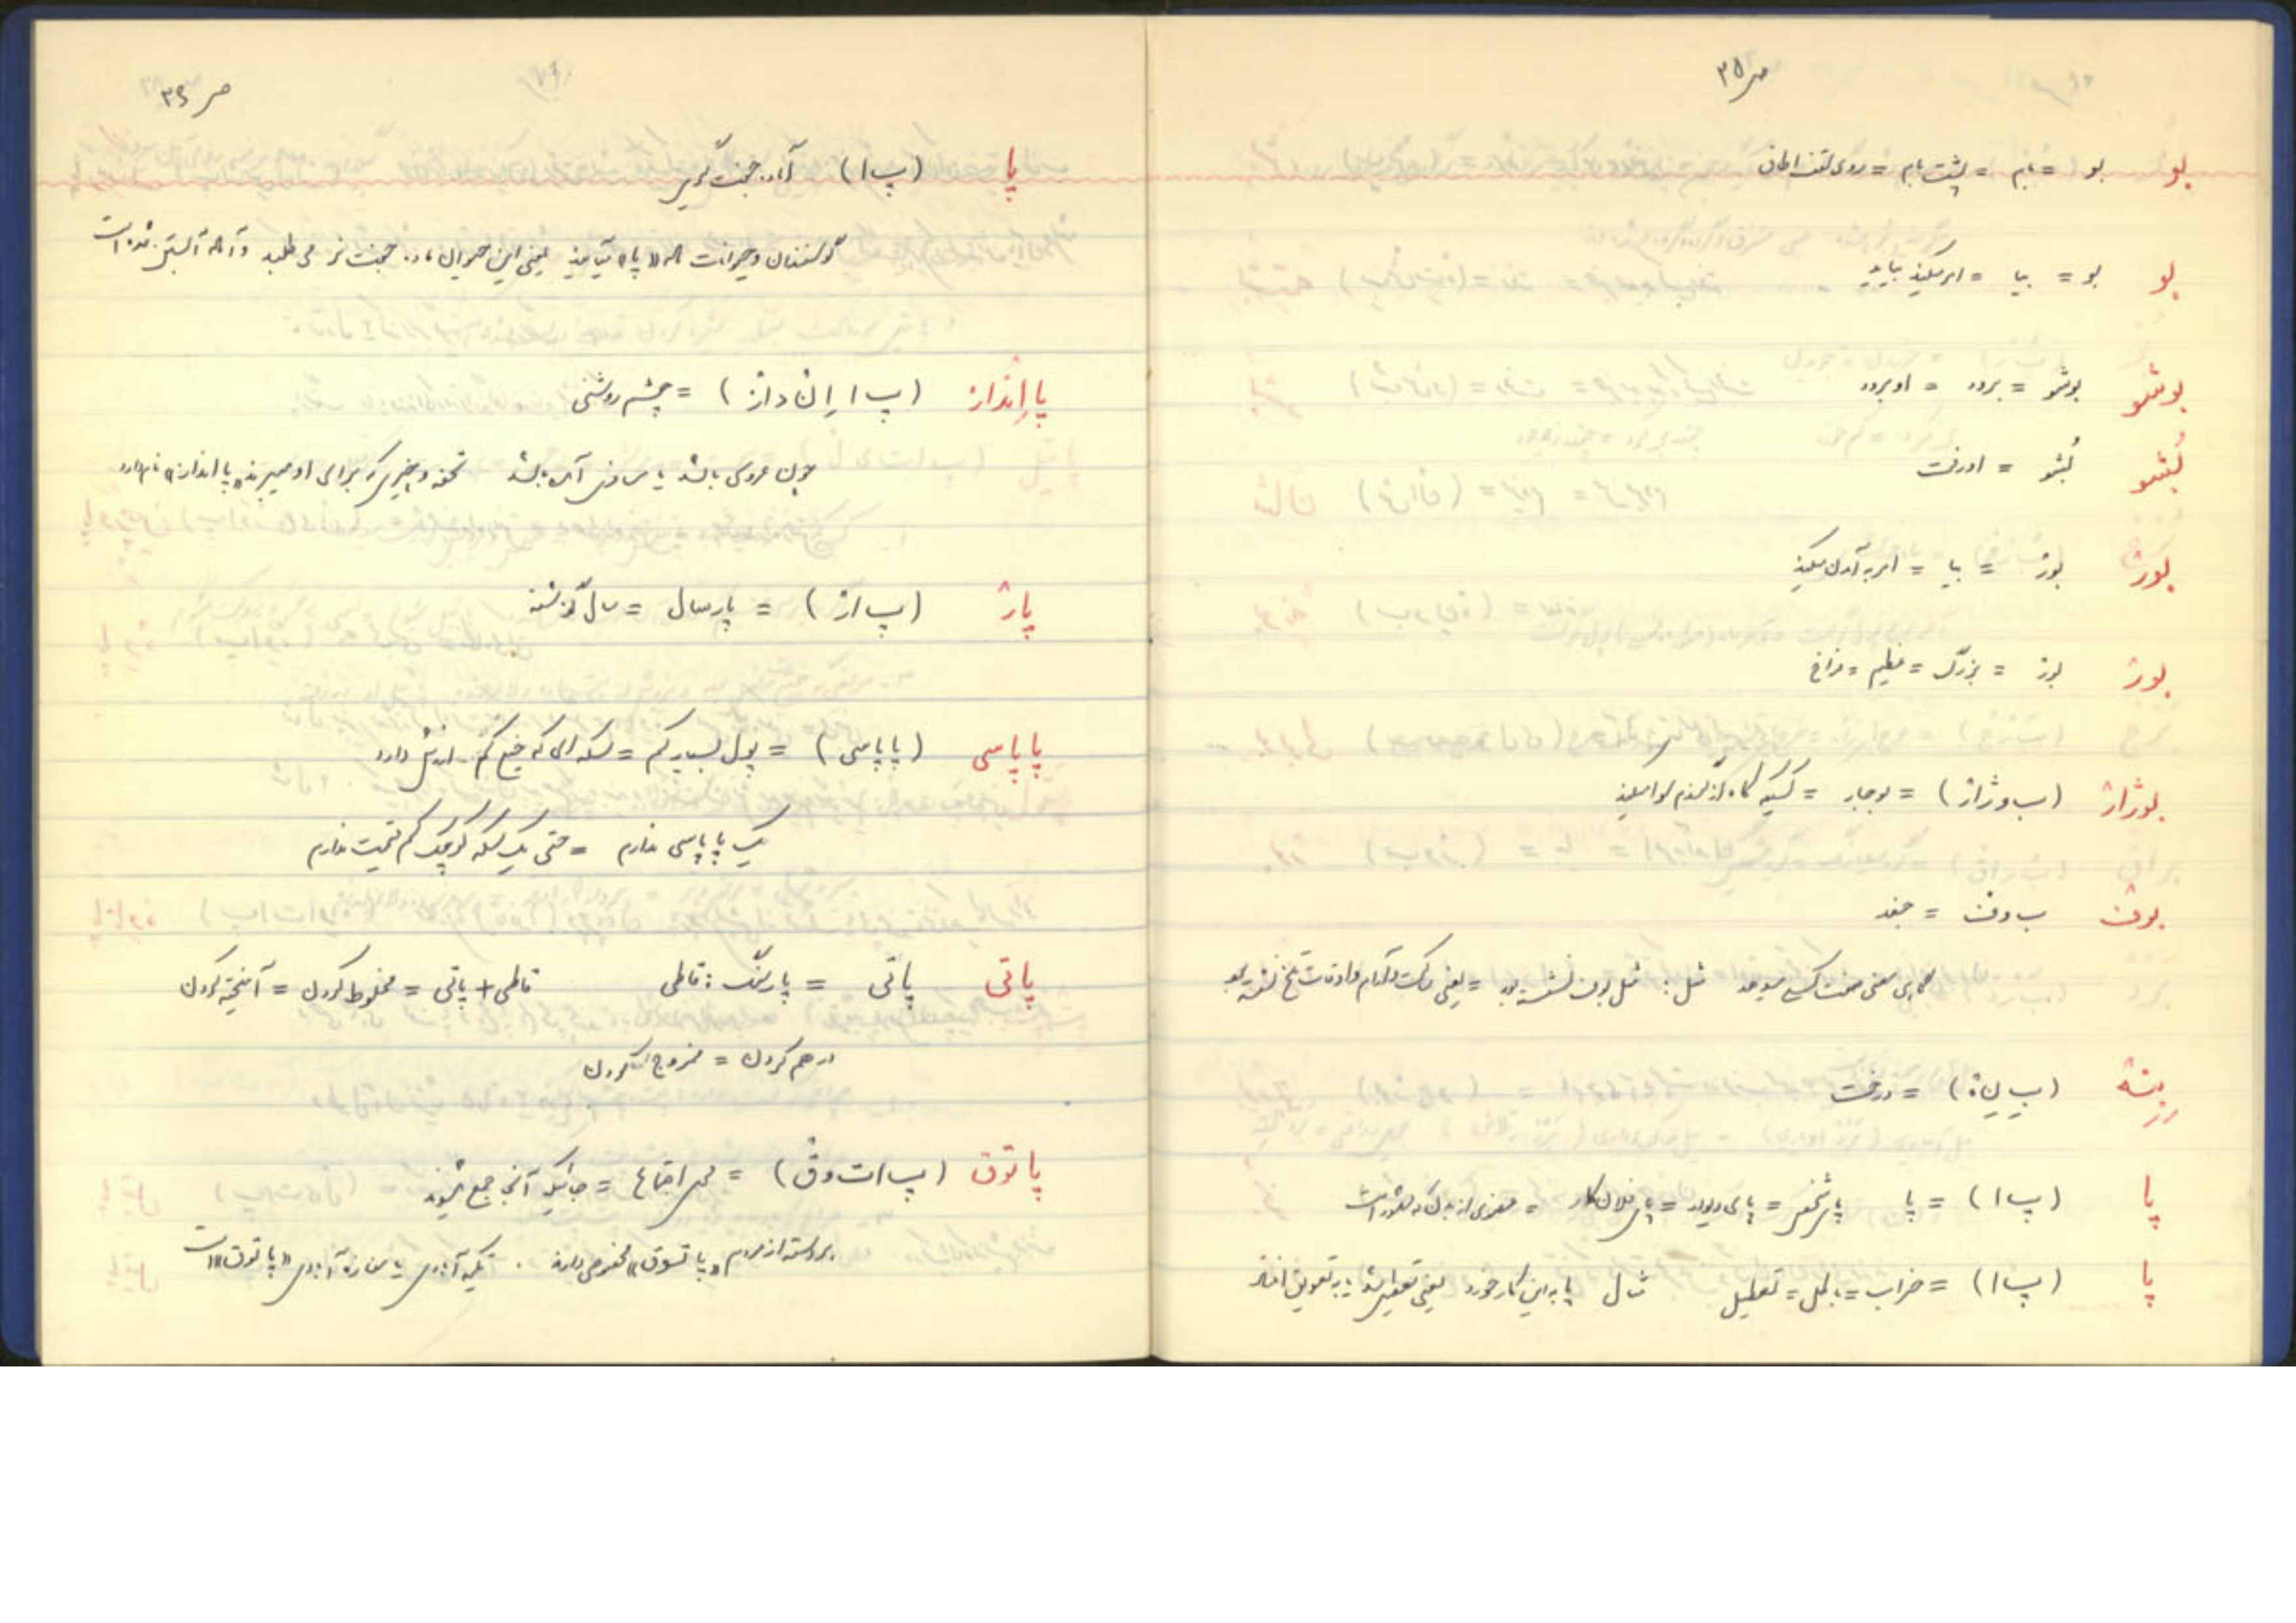 ص ۳۵
بو بو = بام = پشت بام = روی سقف اطاق
بو بو = بیا = امر میکند بیاید
بوشو بوشو = برود = او برود
بُشو بُشو = او رفت
بورْ بورْ = بیا = امر به آمدن میکند
بورْ بورْ = بزرگ = عظیم = فراخ
بوژارْ (ب و ژ ارْ) = بوجار =
بوف ب و ف = جغد
مثل: مثل بوف نشسته بود = یعنی ساکت و آرام و اوقات تلخ نشسته بود
بِنِهْ (بِ نِ هْ) = درخت
پا (پ ا) = پا پای شخص = پای دیوار = پای فلان کار = عضوی از بدن که مشهور است
پا (پ ا) = خراب = باطل = تعطیل مثال پا به این کار خورد یعنی تعطیل شد به تعویق افتاد
ص ۳۶
پا (پ ا) آماده جفت گیری
گوسفندان و حیوانات که «پا» میآیند یعنی این حیوان ماده جفت نر می طلبد و آماده آبستن شدن است
پااِنداز (پ ا اِ ن داز) = چشم روشنی
چون عروسی باشد یا مسافری آمده باشد تحفه و چیزی که برای او میبرند «پا انداز» نام دارد
پارْ (پ ارْ) = پارسال = سال گذشته
پاپاسی (پاپاسی) = پول بسیار کم = سکه ای که خیلی کم ارزش دارد
یک پاپاسی ندارم = حتی یک سکه کوچک کم قیمت ندارم
پاتی پاتی = پارسنگ: قاطی قاطی + پاتی = مخلوط کردن = آمیخته کردن
در هم کردن = ممزوج کردن
پاتوق (پ ا ت و ق) = محل اجتماع = جائیکه آنجا جمع میشوند
هر دسته از مردم «پاتوق» مخصوص دارند . تکیه آبادی یا مغازه آبادی «پاتوق» است